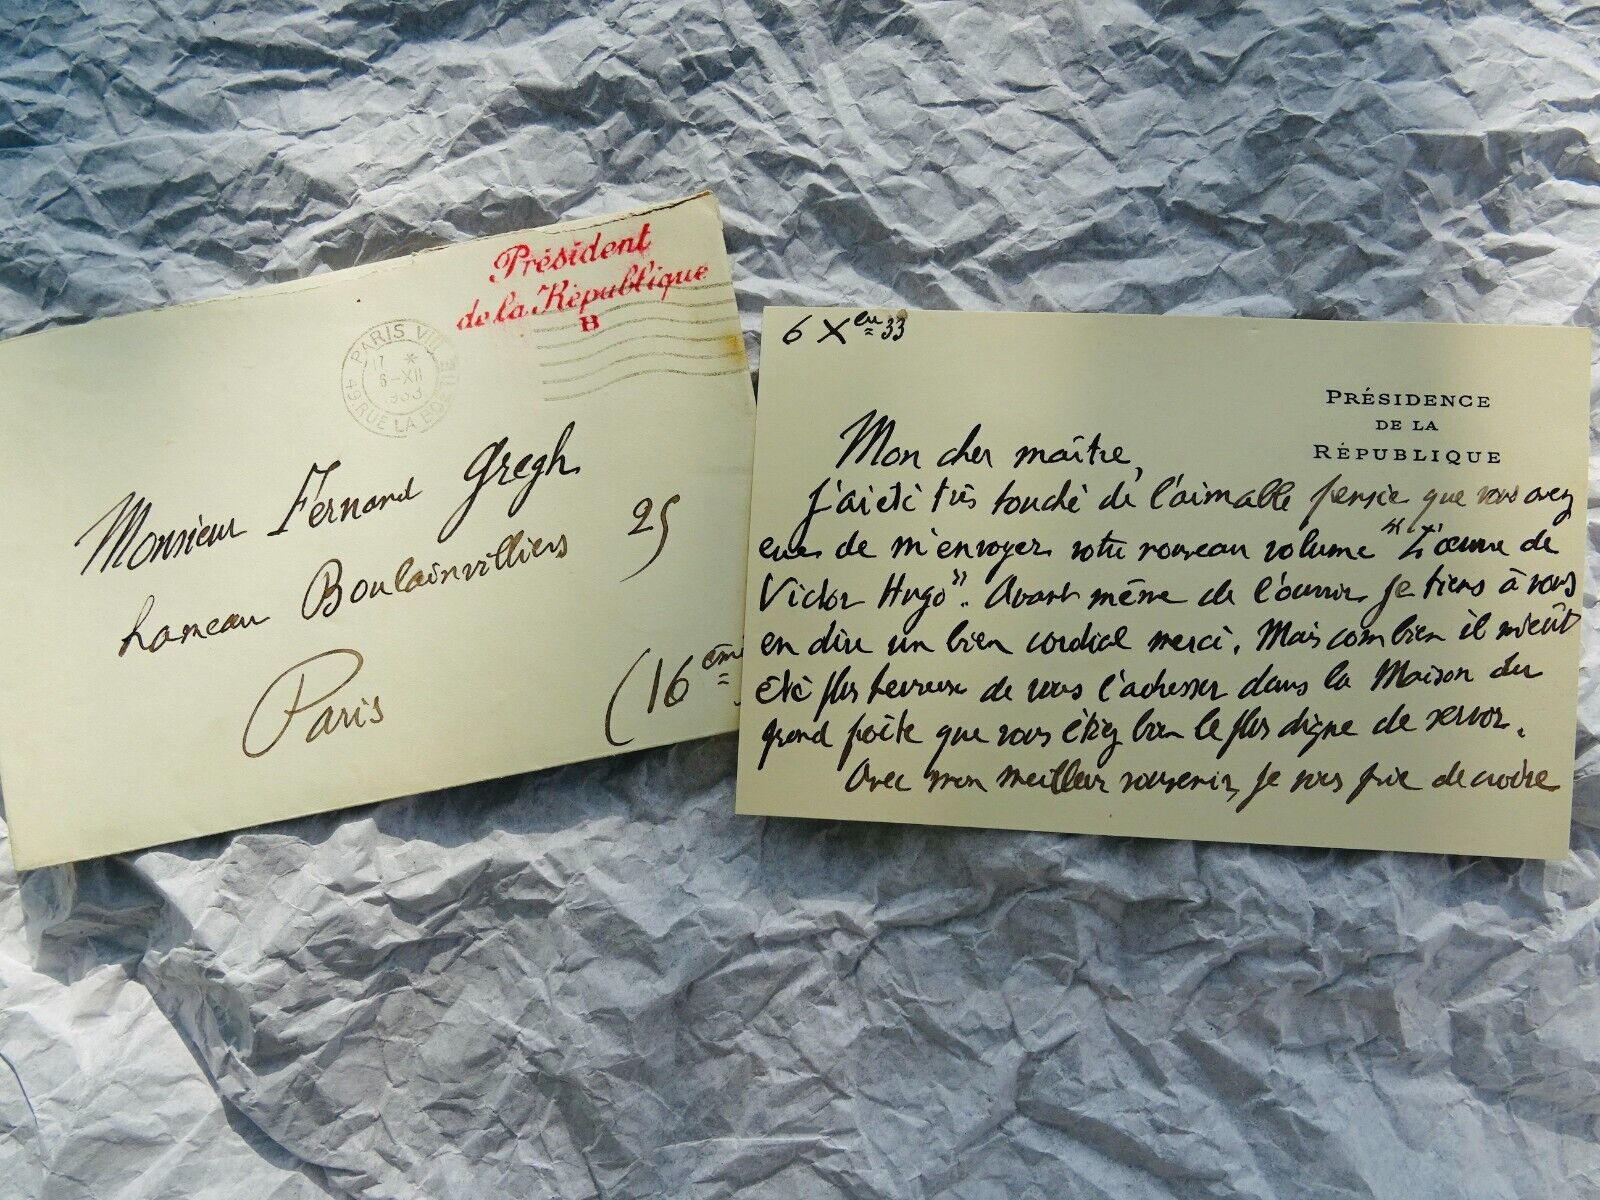 Président
de la République
B
PARIS VIII
17 *
6-XII
933
49 RUE LA BOETIE
Monsieur Fernand Gregh
25
hameau Boulainvilliers
Paris
(16 ème
6 Xbre 33
PRÉSIDENCE
DE LA
RÉPUBLIQUE
Mon cher maître,
J'ai été très touché de l'aimable pensée que vous avez
eue de m'envoyer votre nouveau volume "L'œuvre de
Victor Hugo". Avant même de l'ouvrir je tiens à vous
en dire un bien cordial merci. Mais combien il m'eût
été plus heureux de vous l'adresser dans la Maison du
grand poète que vous étiez bien le plus digne de servir.
Avec mon meilleur souvenir, je vous prie de croire